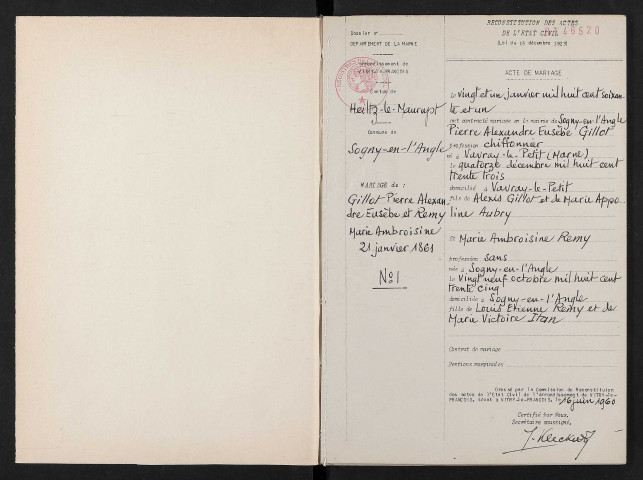 Dossier n°
DEPARTEMENT DE LA MARNE
Arrondissement de
VITRY-le-FRANCOIS
Canton de
Heiltz-le-Maurupt
Commune de
Sogny-en-l'Angle
MARIAGE de :
Gillot Pierre Alexan-
dre Eusèbe et Remy
Marie Ambroisine
21 janvier 1861
N° 1
RECONSTITUTION DES ACTES
DE L'ETAT CIVIL
46520
(Loi du 15 décembre 1923)
ACTE DE MARIAGE
Le vingt et un janvier mil huit cent soixan-
te et un
ont contracté mariage en la mairie de Sogny-en-l'Angle
Pierre Alexandre Eusèbe Gillot
profession chiffonnier
né à Vavray-le-Petit (Marne)
le quatorze décembre mil huit cent
trente trois
domicilié à Vavray-le-Petit
fils de Alexis Gillot et de Marie Appo
line Aubry
Et Marie Ambroisine Remy
profession sans
née à Sogny-en-l'Angle
le vingt neuf octobre mil huit cent
trente cinq
domiciliée à Sogny-en-l'Angle
fille de Louis Etienne Remy et de
Marie Victoire Itan
Contrat de mariage
Mentions marginales
Dressé par la Commission de Reconstitution
des actes de l'Etat Civil de l'arrondissement de VITRY-le-
FRANCOIS, séant à VITRY-le-FRANCOIS, le 16 juin 1960
Certifié par Nous,
Secrétaire soussigné,